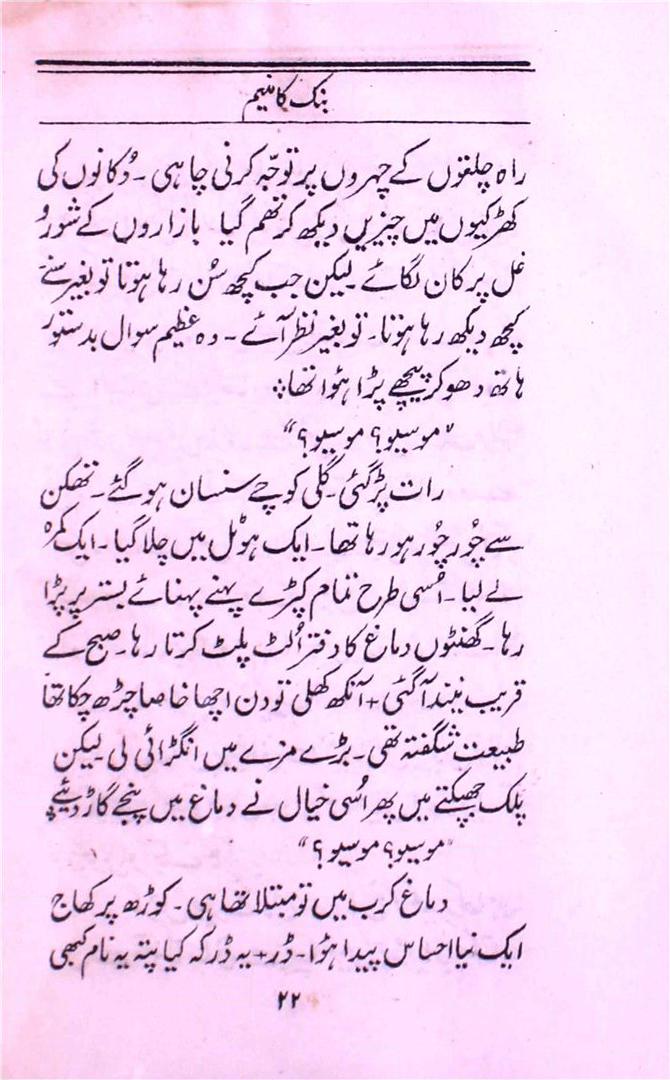 بنک کا منیم
راہ چلتوں کے چہروں پر توجّہ کرنی چاہی ۔ دُکانوں کی
کھڑکیوں میں چیزیں دیکھ کر تھم گیا ۔ بازاروں کے شور و
غل پر کان لگائے ۔ لیکن جب کچھ سُن رہا ہوتا تو بغیر سُنے
کچھ دیکھ رہا ہوتا ۔ تو بغیر نظر آئے ۔ وہ عظیم سوال بدستور
ہاتھ دھو کر پیچھے پڑا ہؤا تھا ۔
"موسیو؟ موسیو؟"
رات پڑ گئی ۔ گلی کوچے سنسان ہو گئے ۔ تھکن
سے چُور چُور ہو رہا تھا ۔ ایک ہوٹل میں چلا گیا ۔ ایک کمرہ
لے لیا ۔ اُسی طرح تمام کپڑے پہنے پہنائے بستر پر پڑا
رہا ۔ گھنٹوں دماغ کا دفتر اُلٹ پلٹ کرتا رہا ۔ صبح کے
قریب نیند آ گئی + آنکھ کھلی تو دن اچھا خاصا چڑھ چکا تھا
طبیعت شگفتہ تھی ۔ بڑے مزے میں انگڑائی لی لیکن
پلک جھپکتے میں پھر اُسی خیال نے دماغ میں پنجے گاڑ دئیے ۔
"موسیو؟ موسیو؟"
دماغ کرب میں تو مبتلا تھا ہی ۔ کوڑھ پر کھاج
ایک نیا احساس پیدا ہؤا ۔ ڈر + یہ ڈر کہ کیا پتہ یہ نام کبھی
۲۲